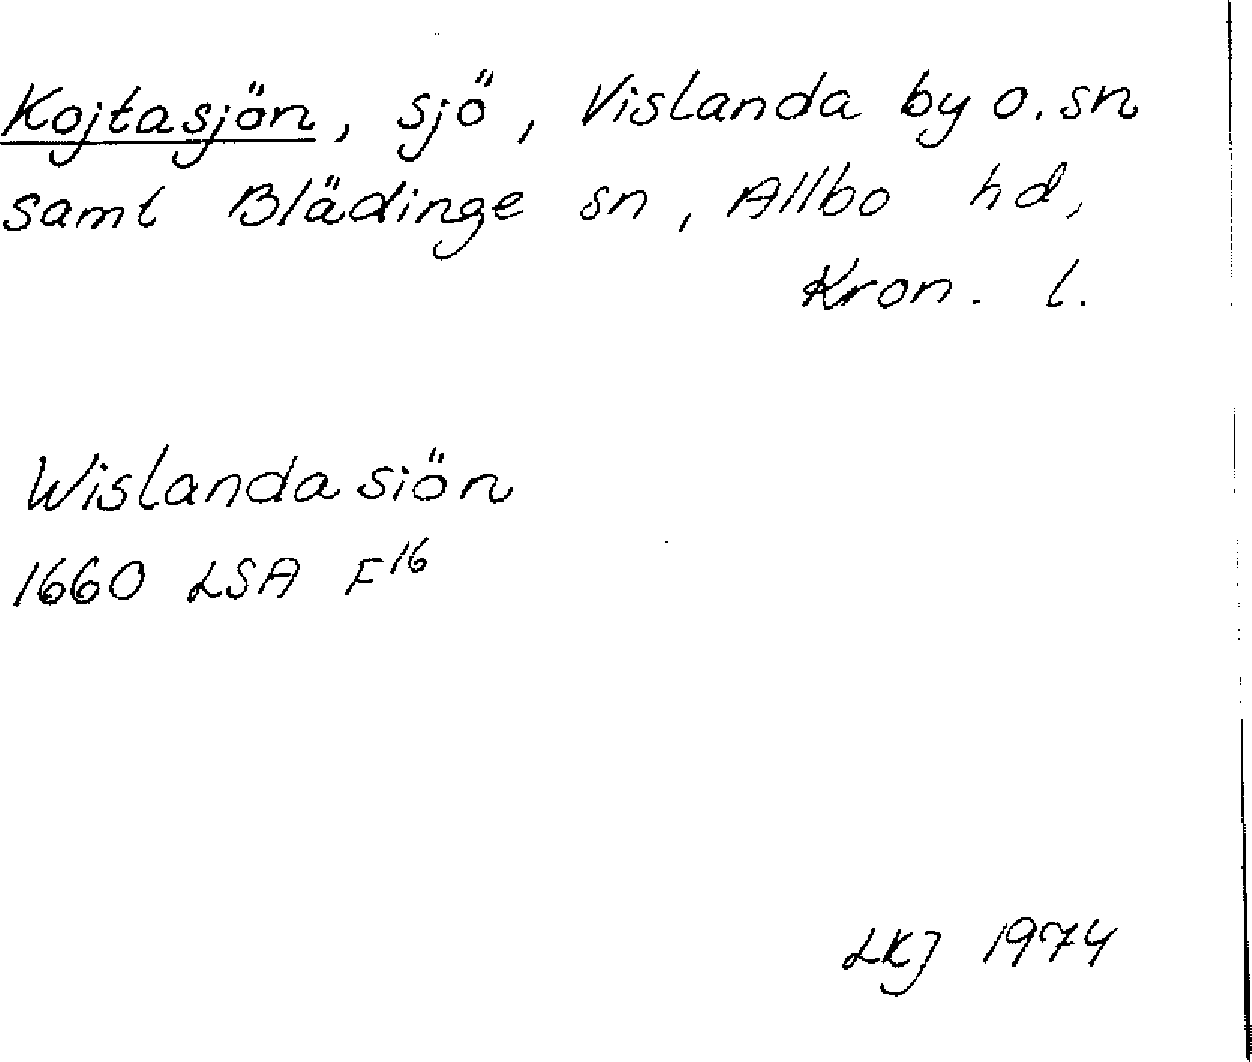 Kojtasjön, sjö, Vislanda by o. sn
samt Blädinge sn, Allbo hd,
Kron. l.
Wislanda siön
1660 LSA F16
LKJ 1974